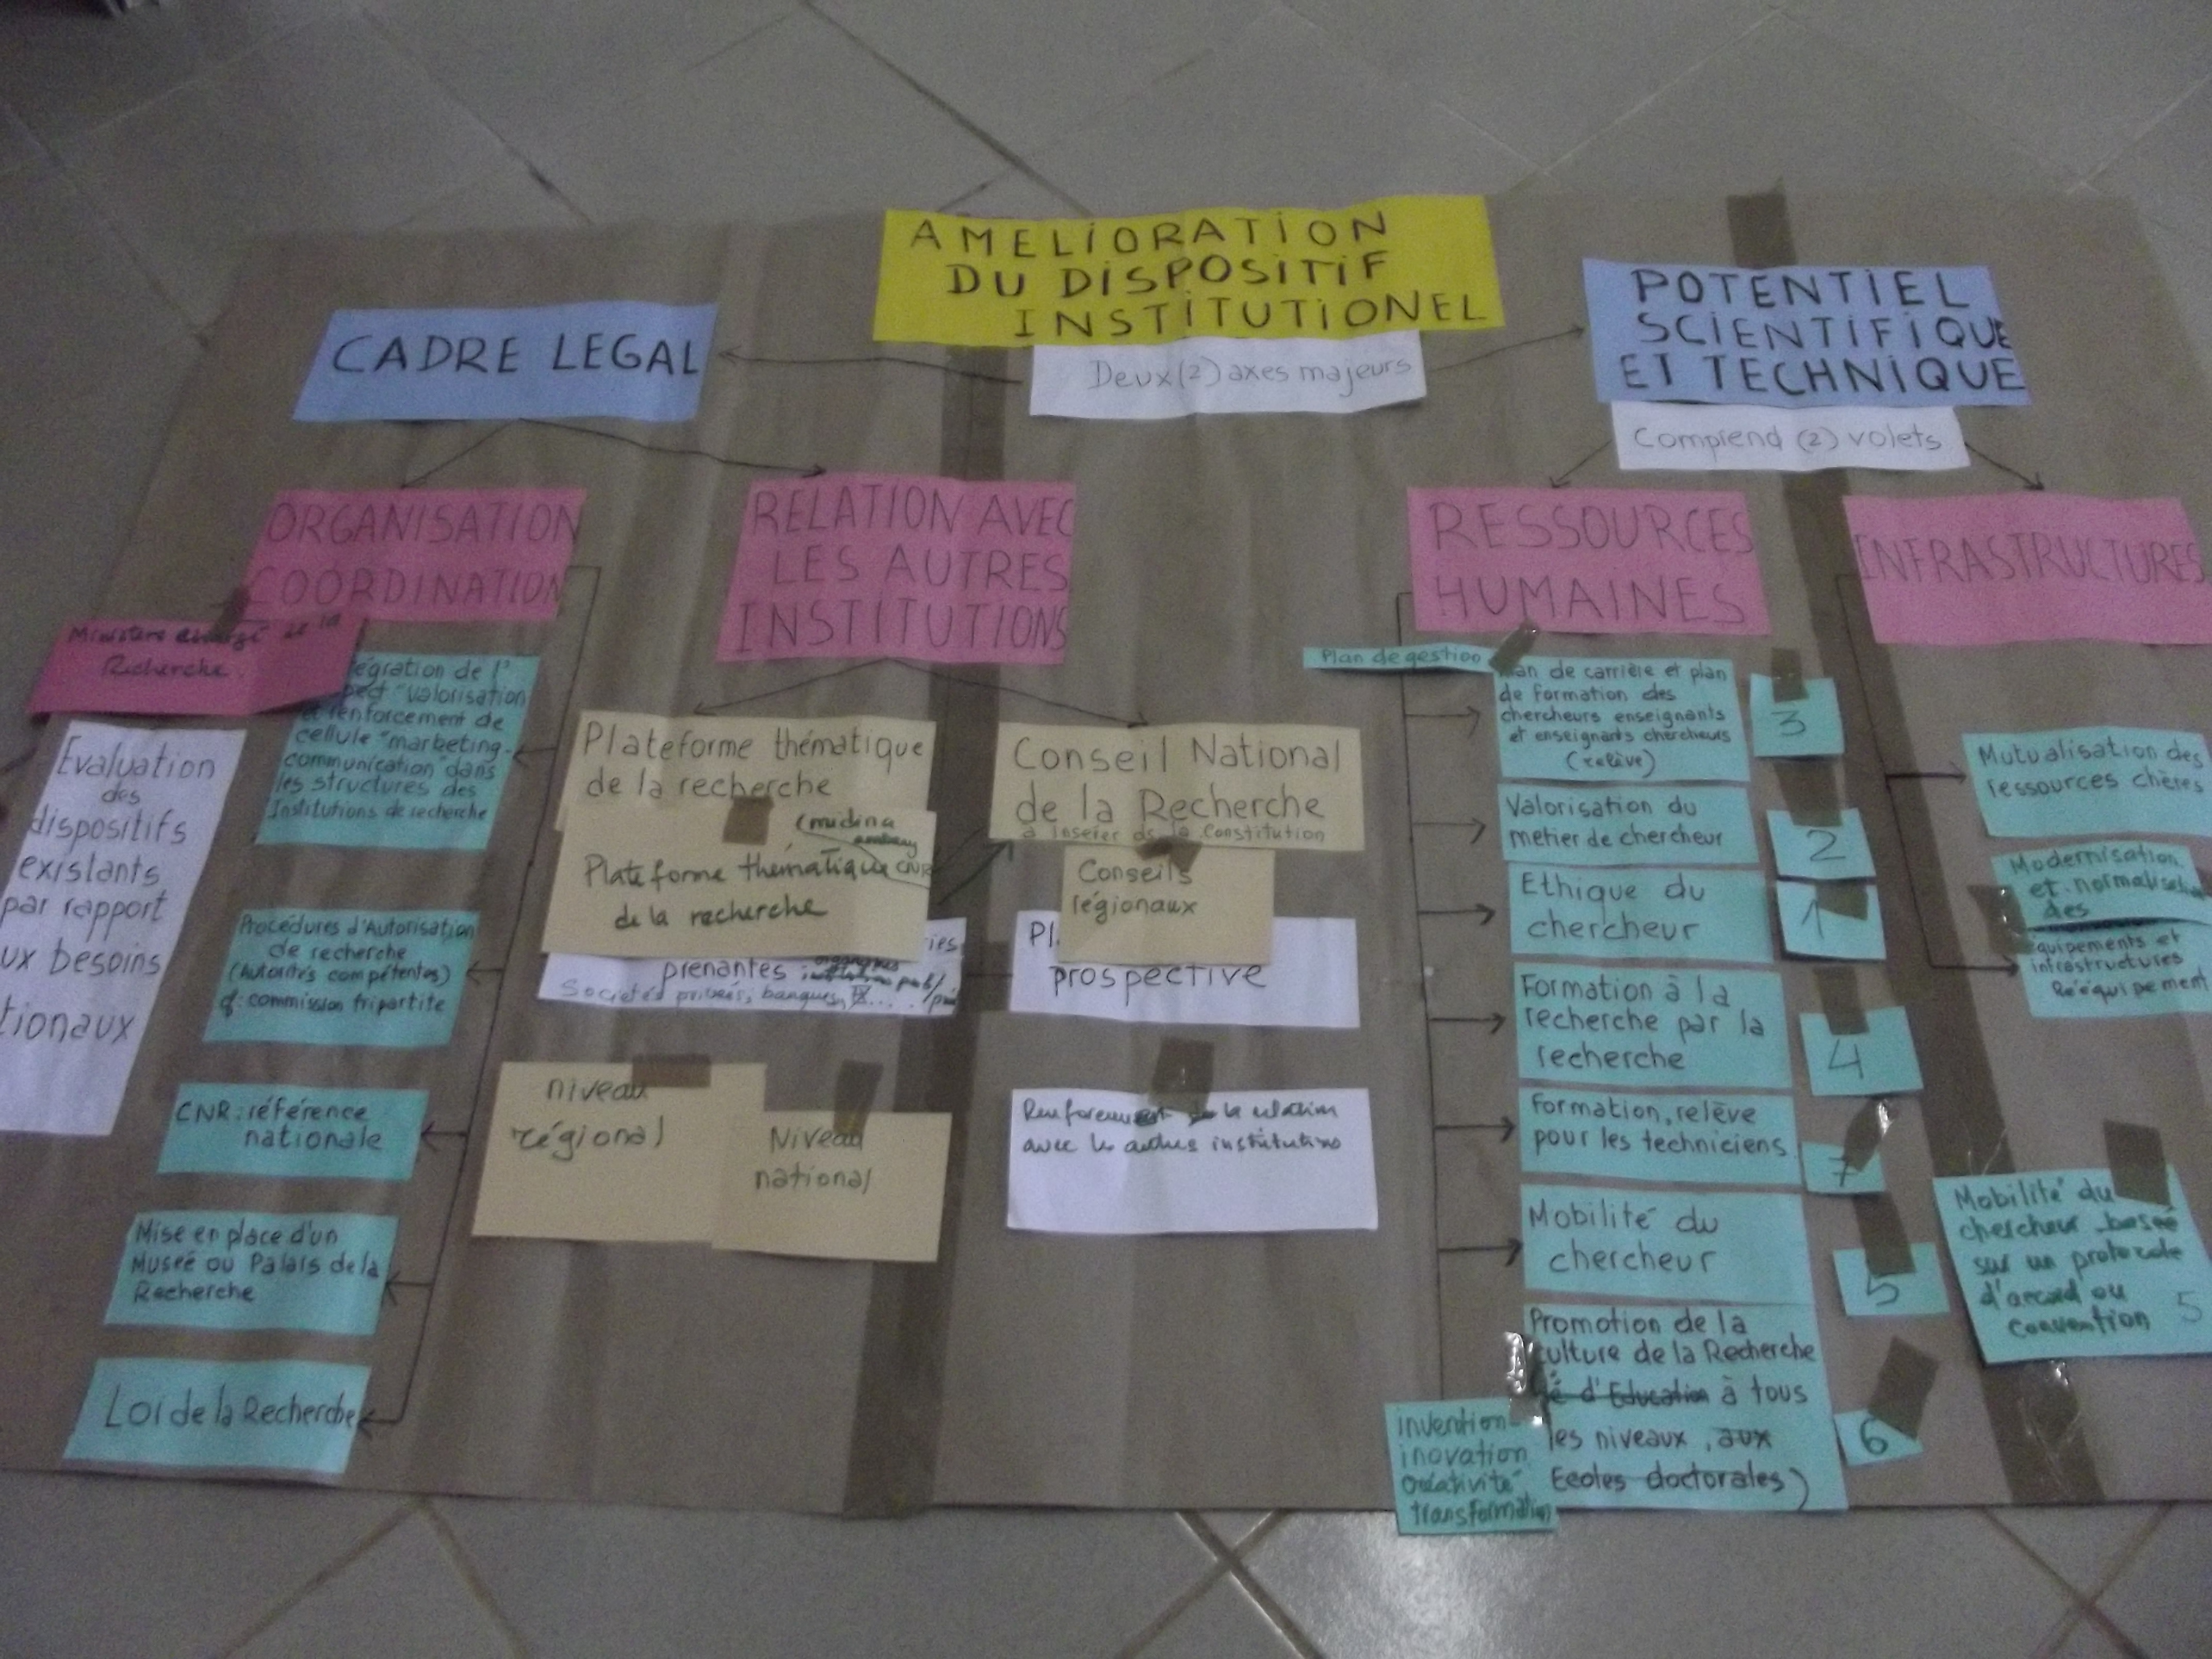 AMELIORATION
DU DISPOSITIF
INSTITUTIONEL
Deux (2) axes majeurs
CADRE LEGAL
POTENTIEL
SCIENTIFIQUE
ET TECHNIQUE
Comprend (2) volets
ORGANISATION
COORDINATION
Ministère chargé de la
Recherche
Evaluation
des
dispositifs
existants
par rapport
ux besoins
tionaux
égration de l'
pect "valorisation
et renforcement de
cellule "marketing-
communication" dans
les structures des
Institutions de recherche
Procédures d'Autorisation
de recherche
(Autorités compétentes)
cf: commission tripartite
CNR: référence
nationale
Mise en place d'un
Museé ou Palais de la
Recherche
Loi de la Recherche
RELATION AVEC
LES AUTRES
INSTITUTIONS
Plateforme thématique
de la recherche
Plateforme thématique
de la recherche
ries
prenantes
Societés privées, banques,
niveau
régional
Niveau
national
Conseil National
de la Recherche
à Inserer ds la Constitution
Conseils
régionaux
Pl
prospective
Renforcement de la relation
avec les autres institutions
RESSOURCES
HUMAINES
Plan de gestion
lan de carrière et plan
de formation des
chercheurs enseignants
et enseignants chercheurs
(relève)
3
Valorisation du
métier de chercheur
2
Ethique du
chercheur
1
Formation à la
recherche par la
recherche
4
Formation, relève
pour les techniciens
7
Mobilité du
chercheur
5
Promotion de la
culture de la Recherche
é d'Education à tous
les niveaux, aux
Ecoles doctorales)
6
invention-
inovation
créativité
transformation
INFRASTRUCTURES
Mutualisation des
ressources chères
Modernisation
et normalisation
des
équipements et
infrastructures
Rééquipement
Mobilité du
chercheur baseé
sur un protocole
d'accord ou
convention
5